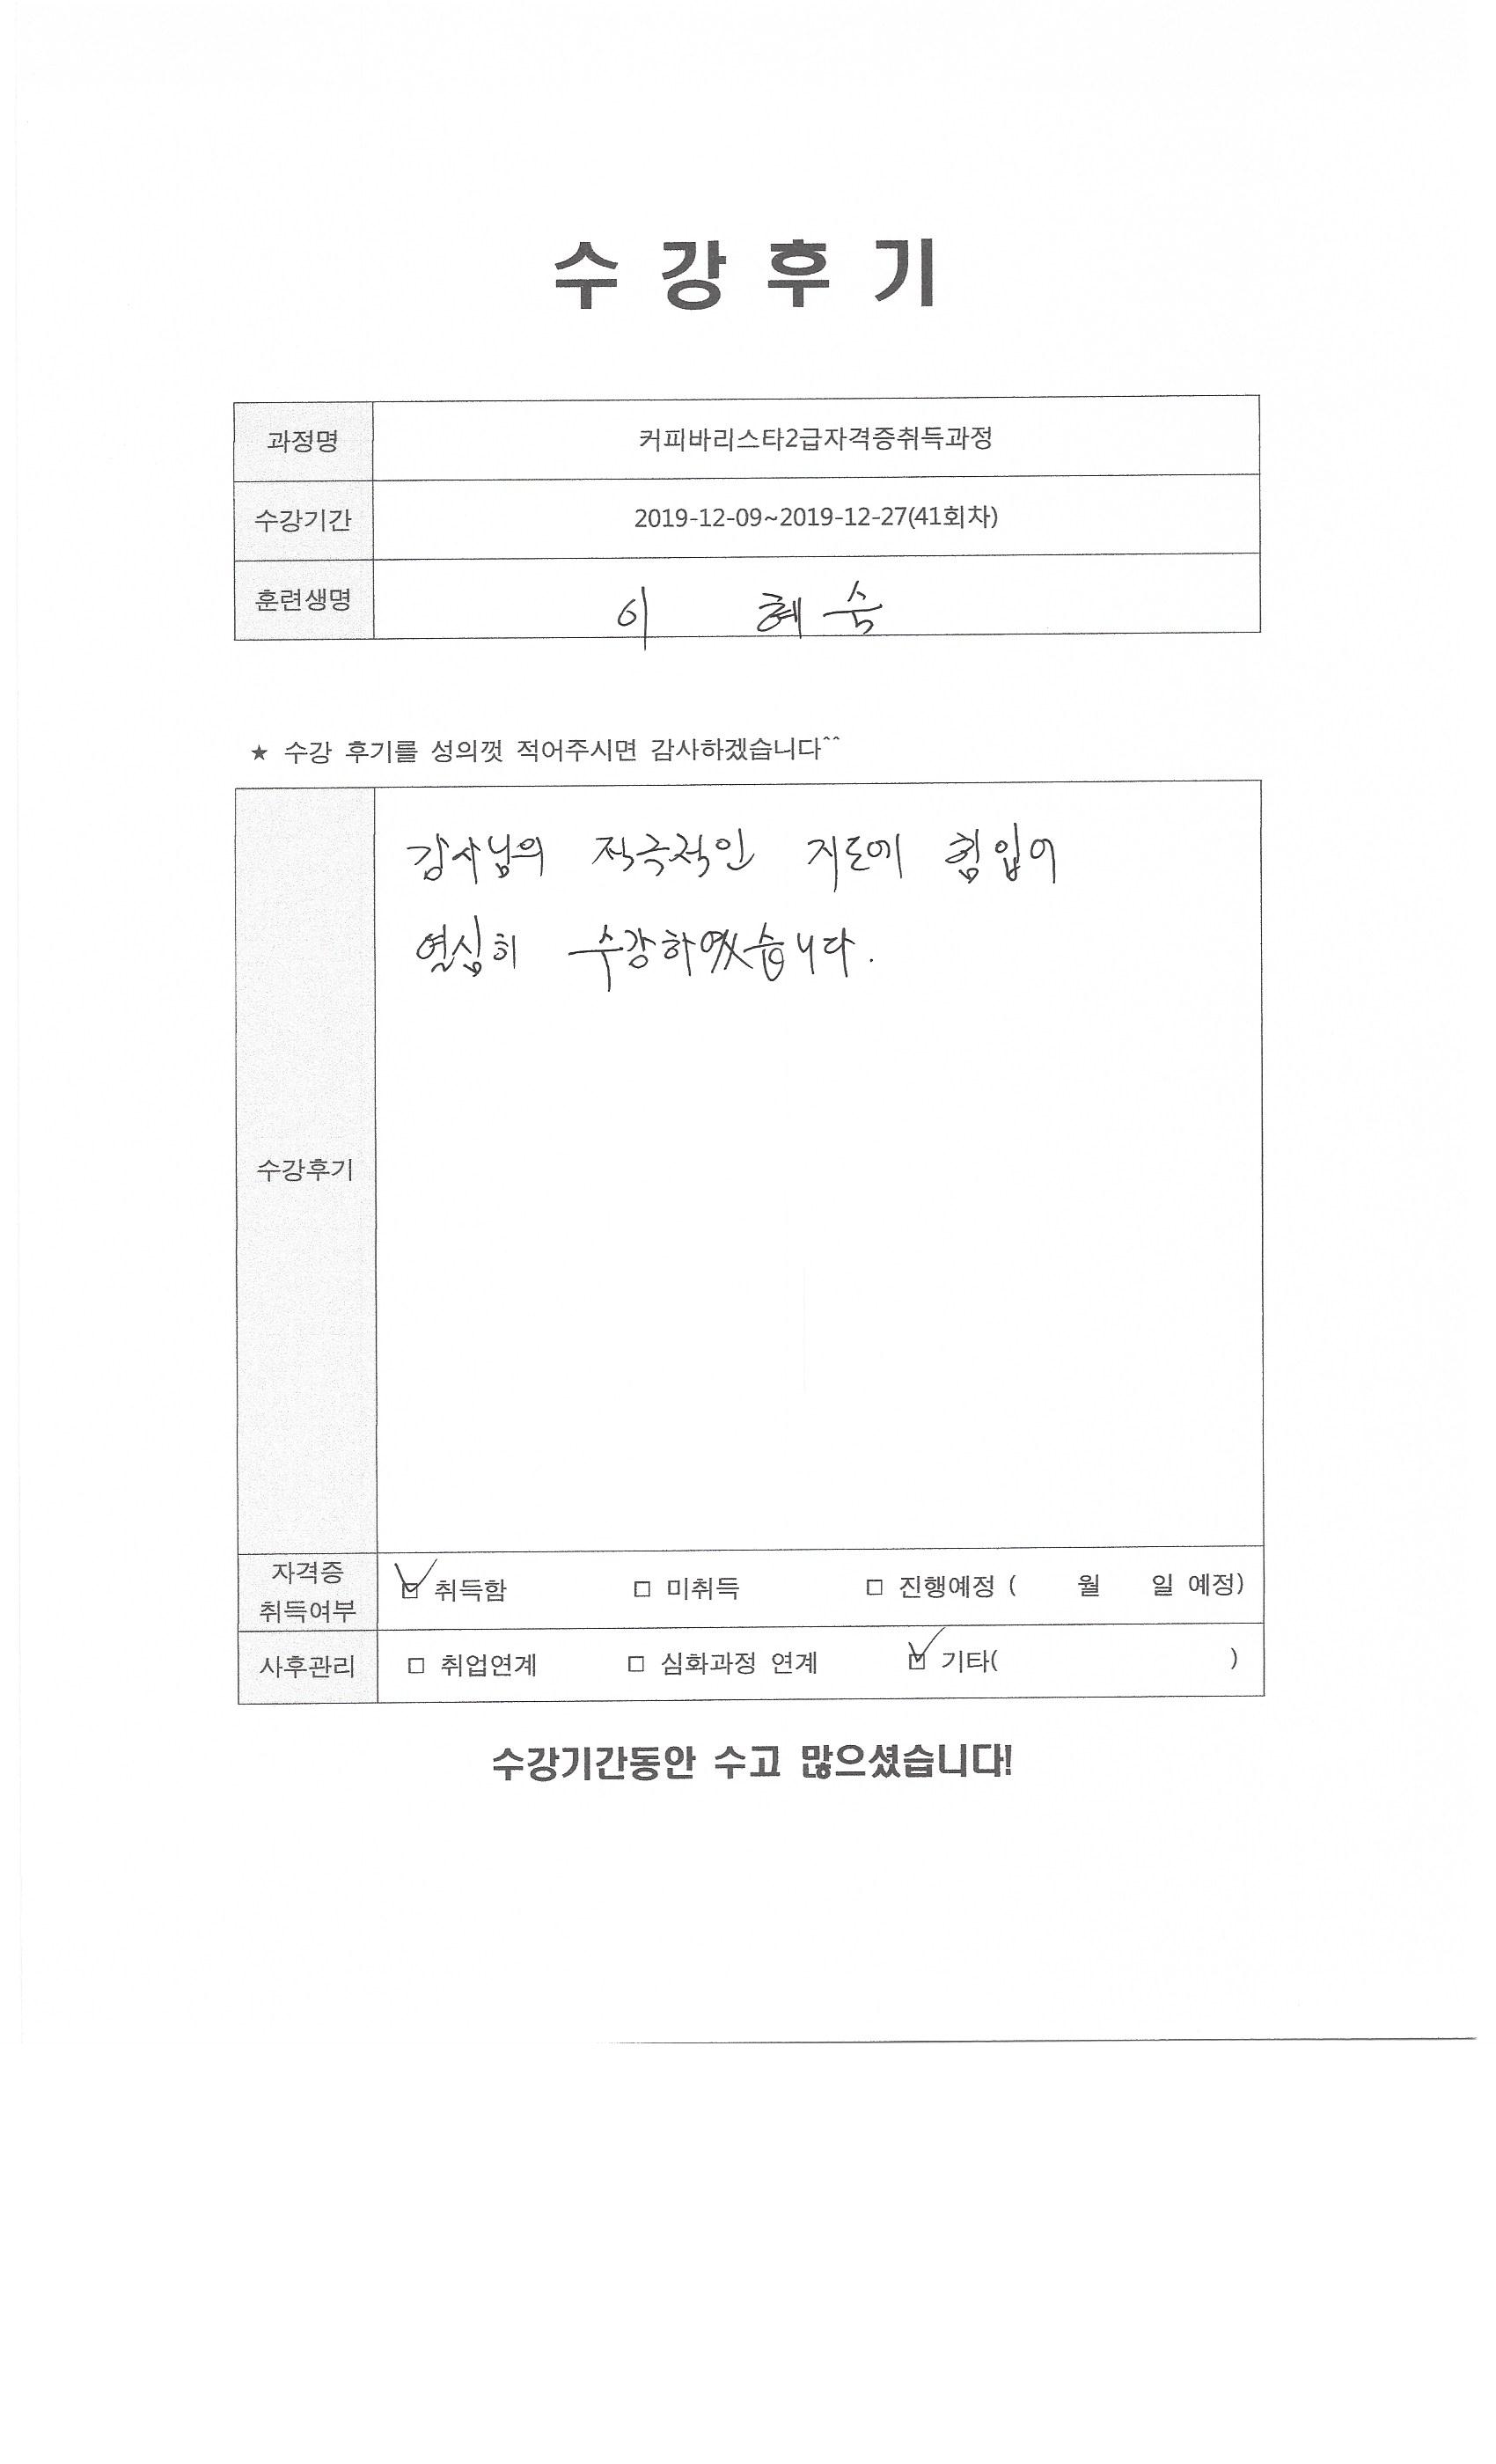 수 강 후 기
과정명 커피바리스타2급자격증취득과정
수강기간 2019-12-09~2019-12-27(41회차)
훈련생명 이 혜숙
★ 수강 후기를 성의껏 적어주시면 감사하겠습니다^^
강사님의 적극적인 지도에 힘입어
열심히 수강하였습니다.
수강후기
자격증
취득여부
☑ 취득함 □ 미취득 □ 진행예정 ( 월 일 예정)
사후관리 □ 취업연계 □ 심화과정 연계 ☑ 기타( )
수강기간동안 수고 많으셨습니다!